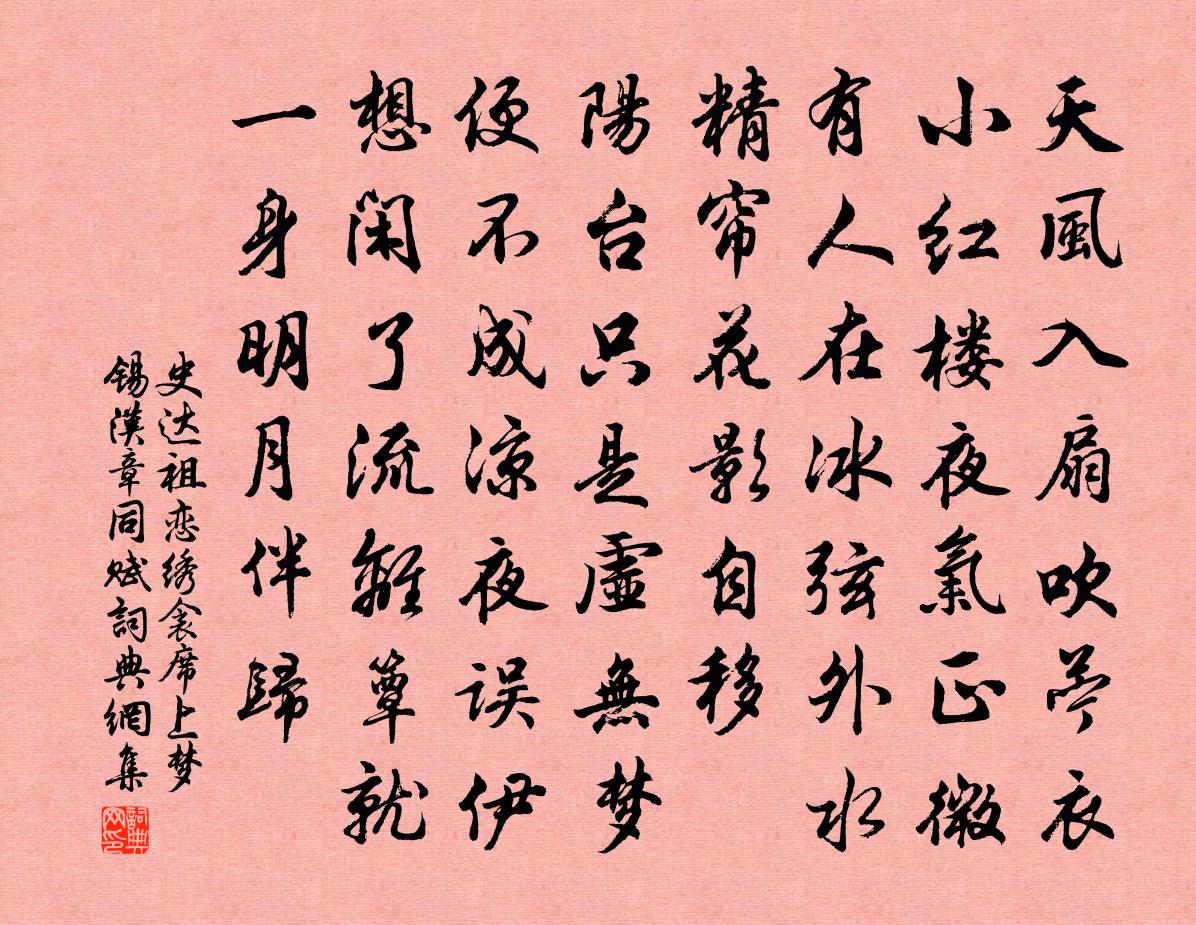 天風入扇吹苧衣
小红楼夜氣正微
有人在冰弦外水
精帘花影自移
陽台只是虛無梦
便不成凉夜误伊
想闲了流離簟就
一身明月伴歸
史达祖恋绣衾席上梦
锡漢章同赋詞典網集
詞典网印